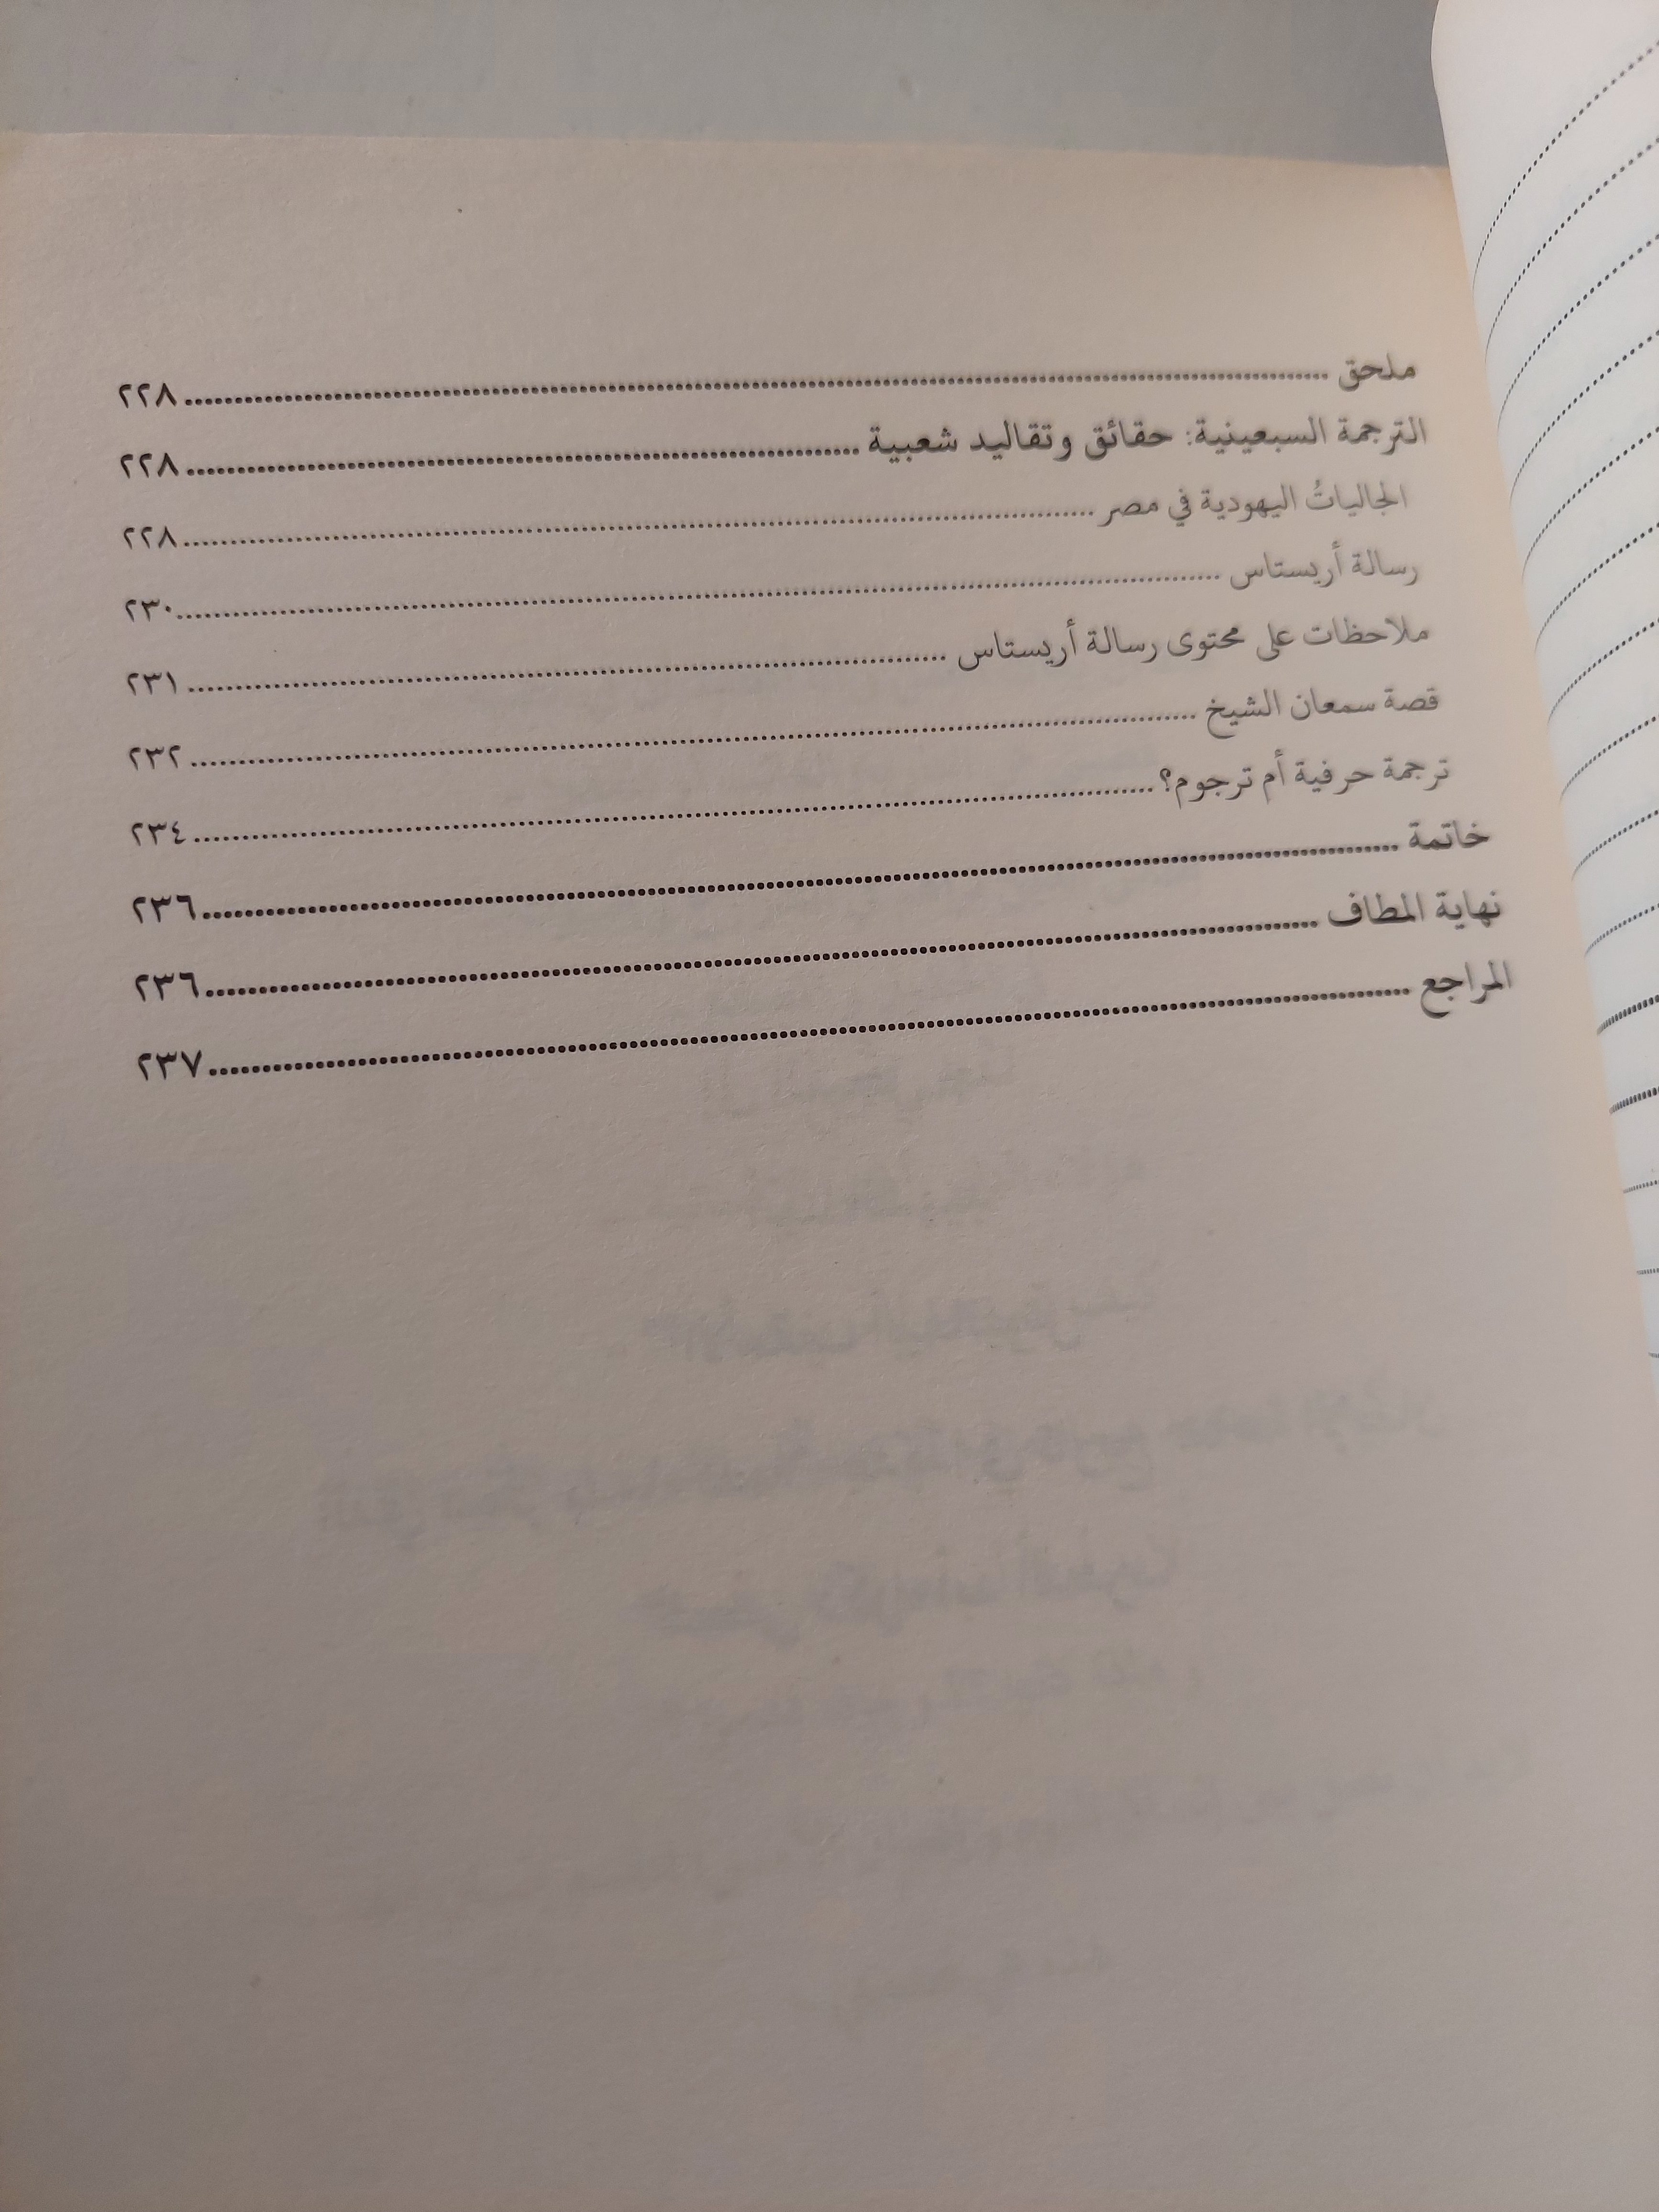 ملحق ..... ٢٢٨
الترجمة السبعينية: حقائق وتقاليد شعبية ..... ٢٢٨
الجالياتُ اليهودية في مصر ..... ٢٢٨
رسالة أريستاس ..... ٢٣٠
ملاحظات على محتوى رسالة أريستاس ..... ٢٣١
قصة سمعان الشيخ ..... ٢٣٢
ترجمة حرفية أم ترجوم؟ ..... ٢٣٤
خاتمة ..... ٢٣٦
نهاية المطاف ..... ٢٣٦
المراجع ..... ٢٣٧